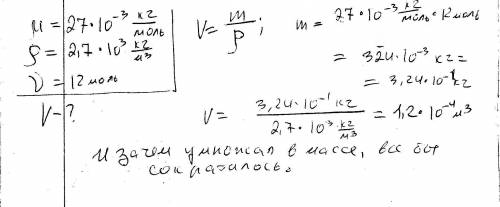 μ = 27·10⁻³ кг/моль
ρ = 2,7·10³ кг/м³
ν = 12 моль
V – ?
V = m/ρ; m = 27·10⁻³ кг/моль · 12 моль
= 324·10⁻³ кг =
= 3,24·10⁻¹ кг
V = 3,24·10⁻¹ кг / 2,7·10³ кг/м³ = 1,2·10⁻⁴ м³
И зачем умножал в массе, все бы
сократилось.